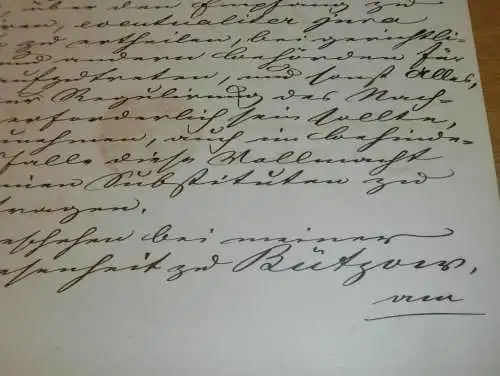 über den Empfang zu
eventualiter jura
zu ertheilen, bei gerichtli-
und andern behörden für
aufzutreten, und sonst alles,
er Regulirung des Nach-
erforderlich sein sollte,
unehmen, auch im behinde-
falle diese Vollmacht
inen Substituten zu
tragen.
eschehen bei meiner
esenheit zu Bützow,
am